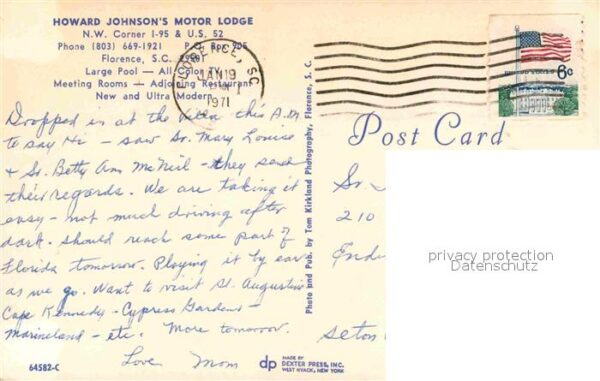 HOWARD JOHNSON'S MOTOR LODGE
N.W. Corner I-95 & U.S. 52
Phone (803) 669-1921 P.O. Box 905
Florence, S.C. 29501
Large Pool — All Color TV
Meeting Rooms — Adjoining Restaurant
New and Ultra Modern
FLORENCE, SC
JAN 19
1971
6c
Dropped in at the Villa this P.M.
to say Hi - saw Sr. Mary Louise
& Sr. Betty Ann McNeil - they send
their regards. We are taking it
easy - not much driving after
dark. Should reach some part of
Florida tomorrow. Playing it by ear
as we go. Want to visit St. Augustine
Cape Kennedy - Cypress Gardens -
Marineland - etc. More tomorrow.
Love Mom
64582-C
Photo and Pub. by Tom Kirkland Photography, Florence, S. C.
dp
MADE BY
DEXTER PRESS, INC.
WEST NYACK, NEW YORK
Post Card
Sr.
210
Seton
privacy protection
Datenschutz